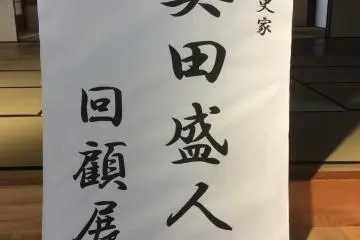 史家
奥田盛人
回顧展